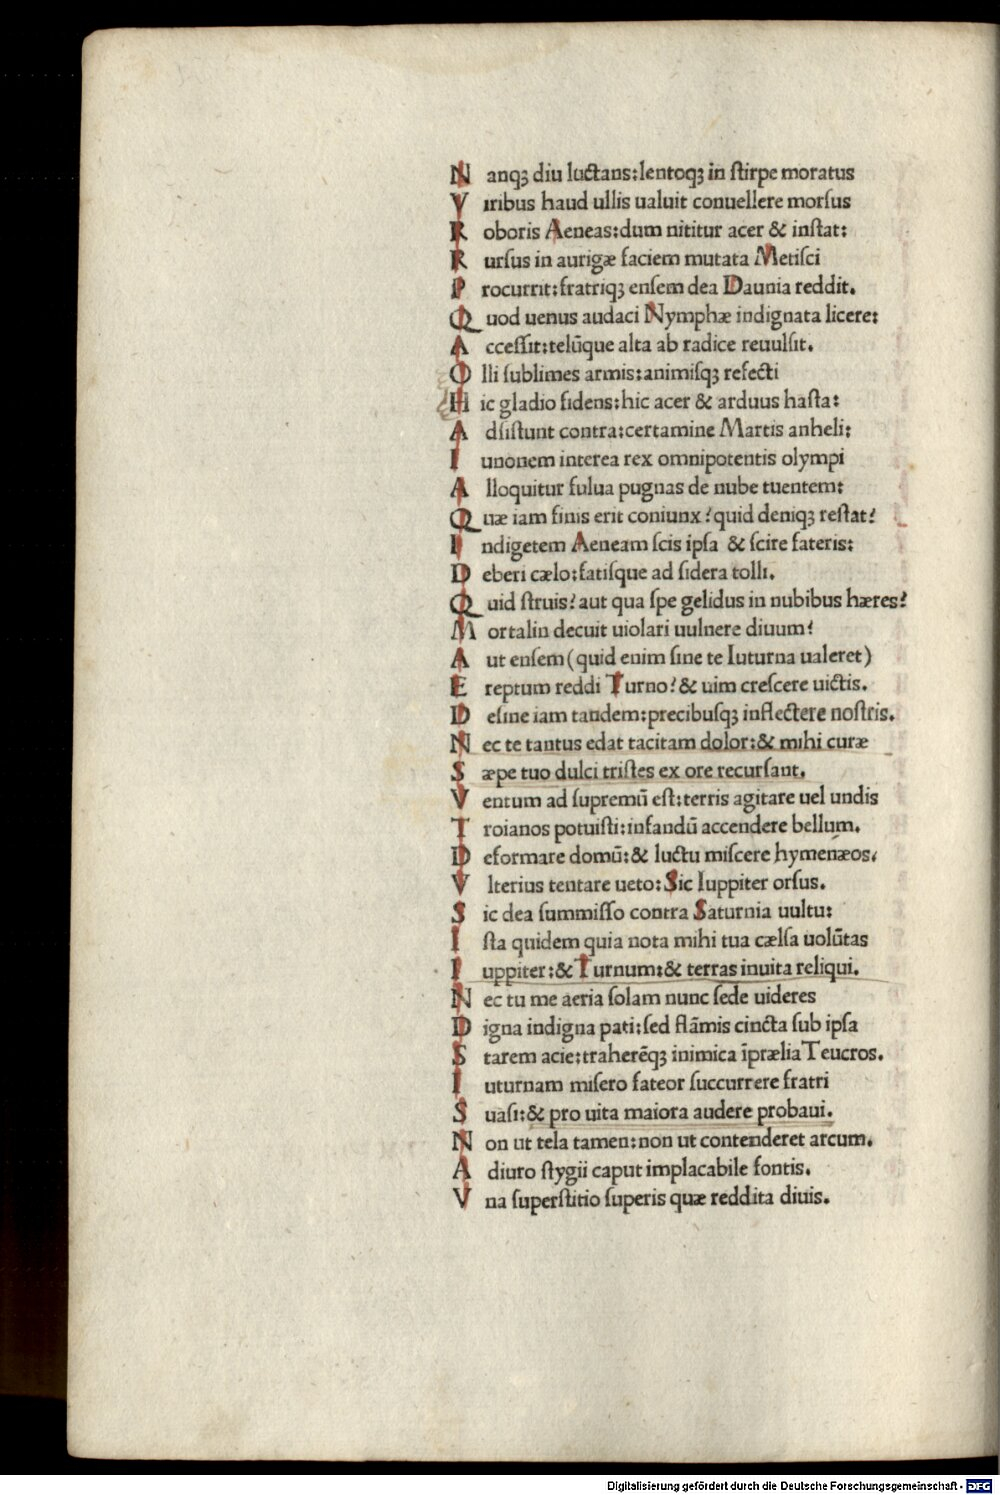 Nanqꝫ diu luctans:lentoqꝫ in ſtirpe moratus
Viribus haud ullis ualuit conuellere morſus
Roboris Aeneas:dum nititur acer & inſtat:
Rurſus in aurigæ faciem mutata Metiſci
Procurrit:fratriqꝫ enſem dea Daunia reddit.
Quod uenus audaci Nymphæ indignata licere:
Acceſſit:telūque alta ab radice reuulſit.
Olli ſublimes armis:animiſqꝫ refecti
Hic gladio fidens:hic acer & arduus haſta:
Adſiſtunt contra:certamine Martis anheli:
Iunonem interea rex omnipotentis olympi
Alloquitur fulua pugnas de nube tuentem:
Quæ iam finis erit coniunx?quid deniqꝫ reſtat?
Indigetem Aeneam ſcis ipſa & ſcire fateris:
Deberi cælo:fatiſque ad ſidera tolli.
Quid ſtruis?aut qua ſpe gelidus in nubibus hæres?
Mortalin decuit uiolari uulnere diuum?
Aut enſem(quid enim ſine te Iuturna ualeret)
Ereptum reddi Turno?& uim creſcere uictis.
Deſine iam tandem:precibuſqꝫ inflectere noſtris.
Nec te tantus edat tacitam dolor:& mihi curæ
Sæpe tuo dulci triſtes ex ore recurſant.
Ventum ad ſupremū eſt:terris agitare uel undis
Troianos potuiſti:infandū accendere bellum.
Deformare domū:& luctu miſcere hymenæos.
Vlterius tentare ueto:Sic Iuppiter orſus.
Sic dea ſummiſſo contra Saturnia uultu:
Iſta quidem quia nota mihi tua cælſa uolūtas
Iuppiter:& Turnum:& terras inuita reliqui.
Nec tu me aeria ſolam nunc ſede uideres
Digna indigna pati:ſed flāmis cincta ſub ipſa
Starem acie:traherēqꝫ inimica īprælia Teucros.
Iuturnam miſero fateor ſuccurrere fratri
Suaſi:& pro uita maiora audere probaui.
Non ut tela tamen:non ut contenderet arcum.
Adiuro ſtygii caput implacabile fontis.
Vna ſuperſtitio ſuperis quæ reddita diuis.
Digitalisierung gefördert durch die Deutsche Forschungsgemeinschaft - DFG